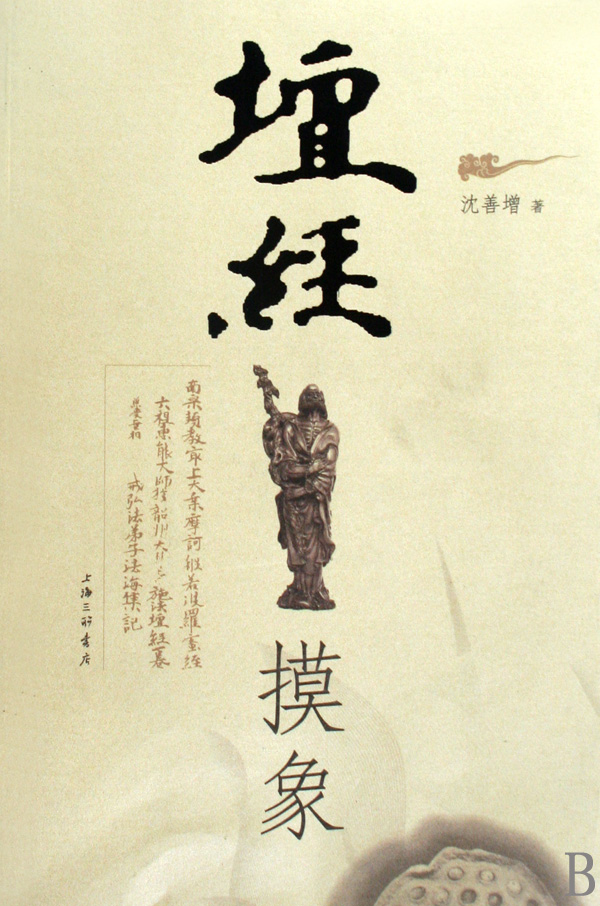 壇經
沈善增 著
南宗頓教最上大乘摩訶般若波羅蜜經
六祖惠能大師於韶州大梵寺施法壇經一卷
兼受無相 戒弘法弟子法海集記
上海三联书店
摸象
B